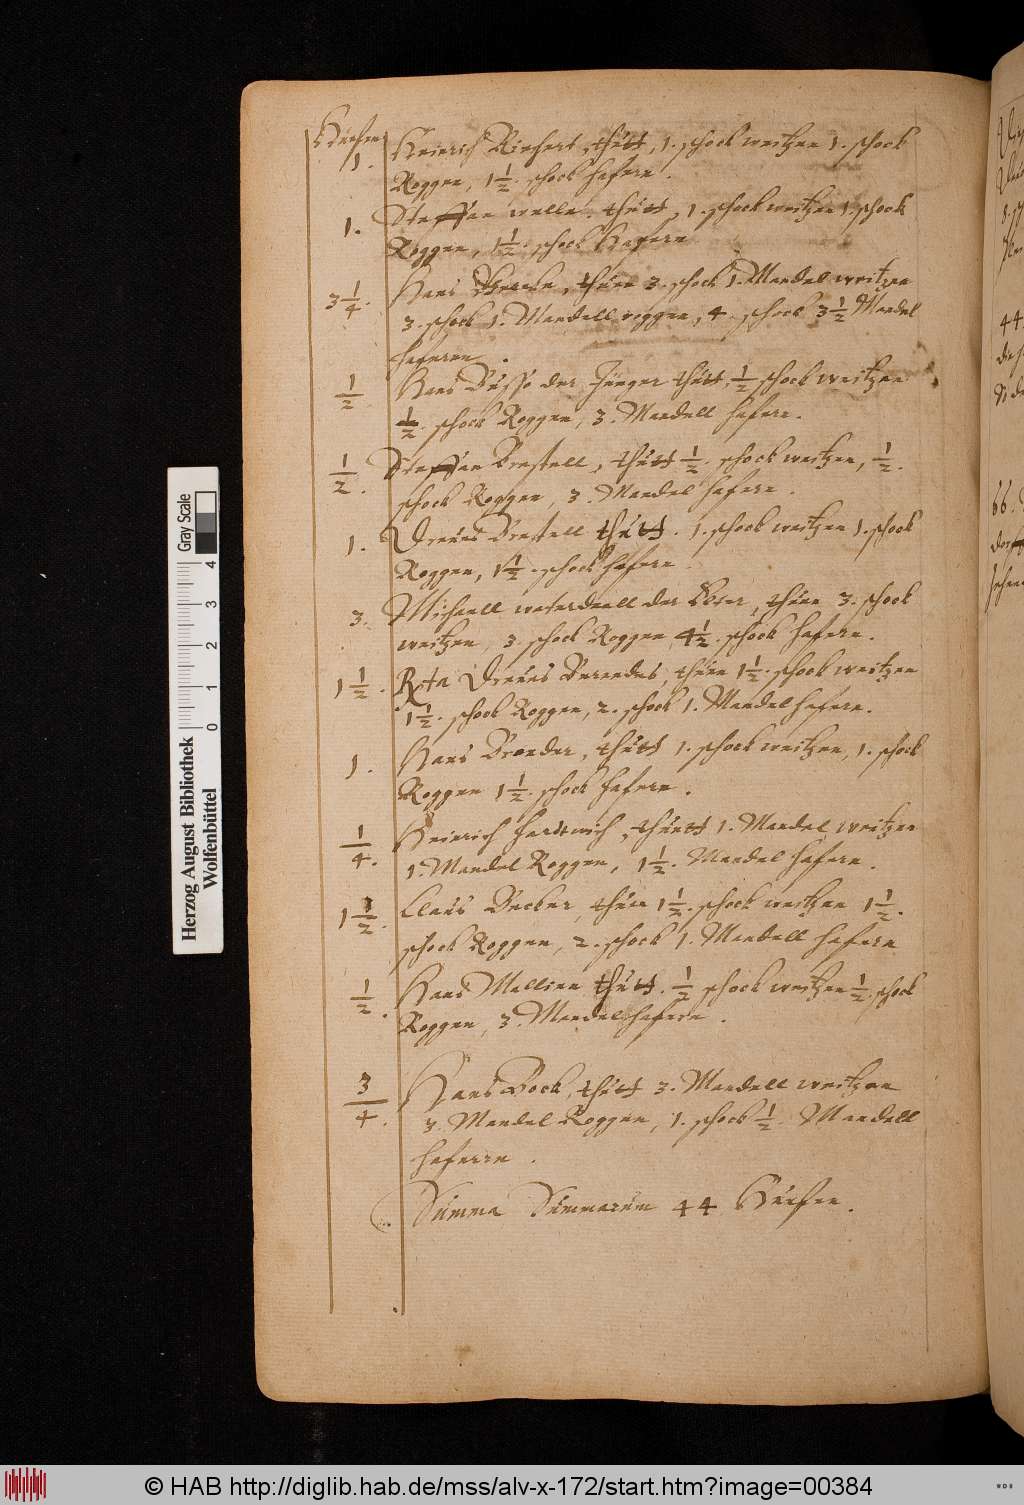 Hueffen
1. Heinrich Richert, thutt, 1. schock weitzen 1. schock
Roggen, 1½. schock hafern.
1. Steffen welle, thutt, 1. schock weitzen 1. schock
Roggen, 1½. schock Hafern
3¼. Hans, thuen 3. schock 1. Mandel weitzen
3. schock 1. Mandell roggen, 4. schock 3½ Mandel
haferen.
½ Hans Busse der Junger thutt, ½ schock weitzen
½. schock Roggen, 3. Mandell hafern.
½. Steffen Brestell, thutt ½. schock weitzen, ½.
schock Roggen, 3. Mandel hafern.
1. Drewes Brestell thutt. 1. schock weitzen 1. schock
Roggen, 1½. schock hafern.
3. Michaell waterdeell der, thuen 3. schock
weitzen, 3. schock Roggen 4½. schock hafern.
1½. Drewes Berendes, thuen 1½. schock weitzen
1½. schock Roggen, 2. schock 1. Mandel hafern.
1. Hans Brander, thutt 1. schock weitzen, 1. schock
Roggen 1½. schock hafern.
¼. Heinrich Hardewich, thutt 1. Mandel weitzen
1. Mandel Roggen, 1½. Mandel hafern.
1½. Claus Becker, thuen 1½. schock weitzen 1½.
schock Roggen, 2. schock 1. Mandell hafern
½. Hans Mellien thutt. ½ schock weitzen ½. schock
Roggen, 3. Mandel hafern.
¾. Hans Bock, thutt 3. Mandell weitzen
3. Mandel Roggen, 1. schock ½. Mandell
haferen.
Summa Summarum 44 Hueffen.
44
66.
Gray Scale
0 1 2 3 4
Herzog August Bibliothek
Wolfenbüttel
© HAB http://diglib.hab.de/mss/alv-x-172/start.htm?image=00384